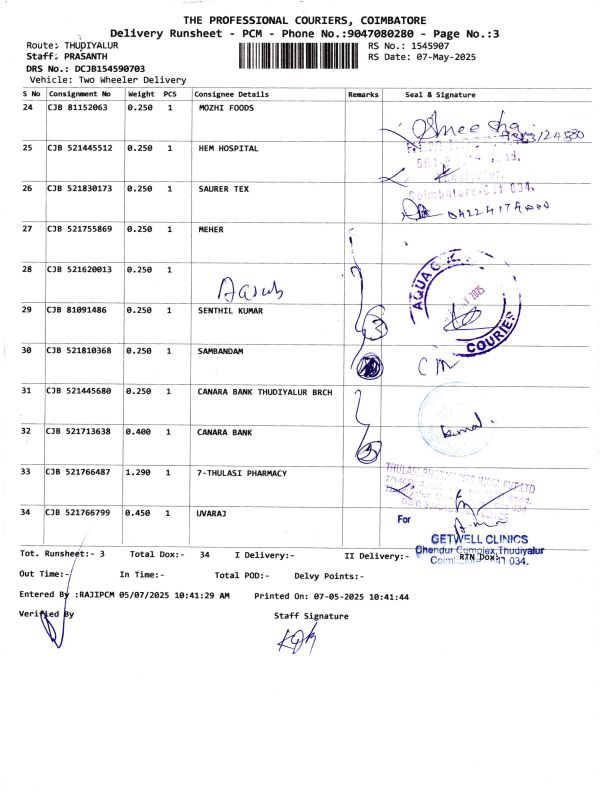 THE PROFESSIONAL COURIERS, COIMBATORE
Delivery Runsheet - PCM - Phone No.:9047080280 - Page No.:3
Route: THUDIYALUR
RS No.: 1545907
Staff: PRASANTH
RS Date: 07-May-2025
DRS No.: DCJB154590703
Vehicle: Two Wheeler Delivery
S No Consignment No Weight PCS Consignee Details Remarks Seal & Signature
24 CJB 81152063 0.250 1 MOZHI FOODS
25 CJB 521445512 0.250 1 HEM HOSPITAL
26 CJB 521830173 0.250 1 SAURER TEX
27 CJB 521755869 0.250 1 MEHER
28 CJB 521620013 0.250 1
AQUA
2025
COURIER
29 CJB 81091486 0.250 1 SENTHIL KUMAR
3
30 CJB 521810368 0.250 1 SAMBANDAM
31 CJB 521445680 0.250 1 CANARA BANK THUDIYALUR BRCH
32 CJB 521713638 0.400 1 CANARA BANK
33 CJB 521766487 1.290 1 7-THULASI PHARMACY
THULASI PHARMACIES INDIA PVT LTD
34 CJB 521766799 0.450 1 UVARAJ
For
GETWELL CLINICS
Chendur Complex, Thudiyalur
Tot. Runsheet:- 3 Total Dox:- 34 I Delivery:- II Delivery:- RTN Dox:-
Out Time:- In Time:- Total POD:- Delvy Points:-
Entered By :RAJIPCM 05/07/2025 10:41:29 AM Printed On: 07-05-2025 10:41:44
Verified By Staff Signature